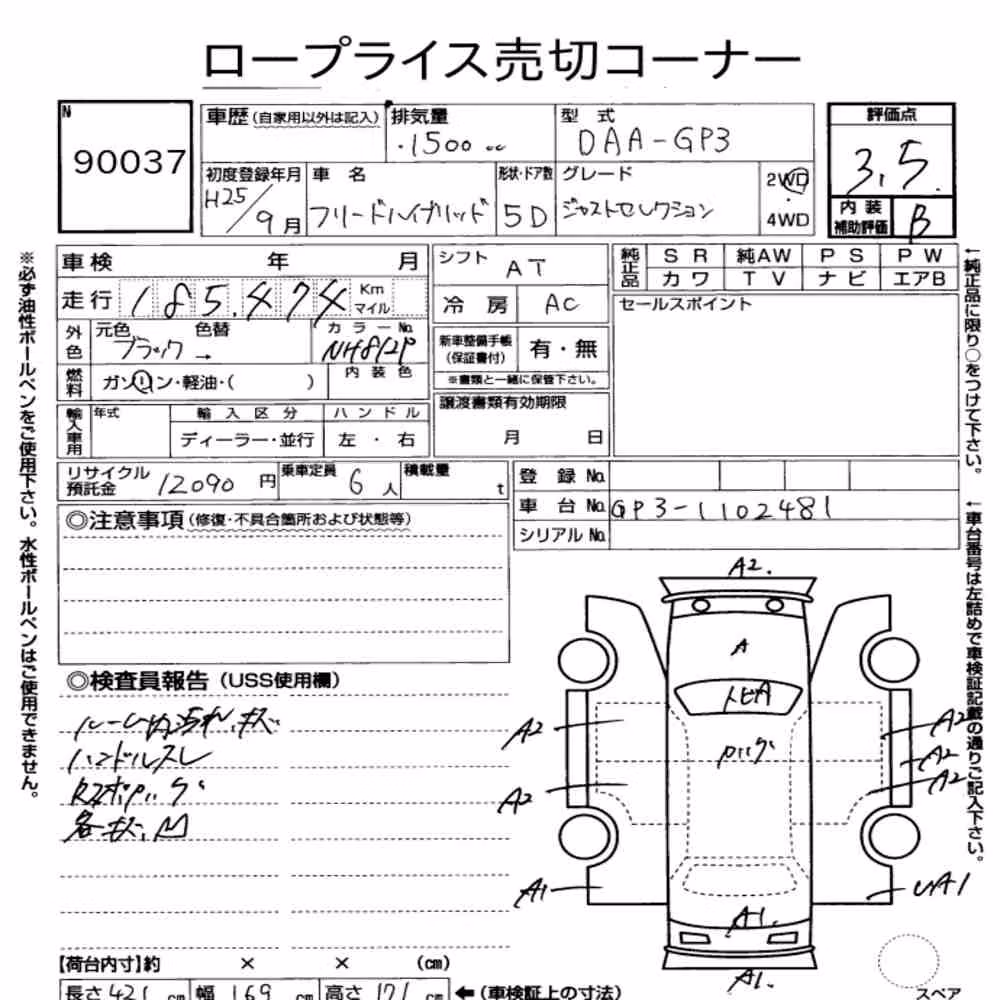 ロープライス売切コーナー
N
90037
車歴 (自家用以外は記入)
排気量
1500 cc
型 式
DAA-GP3
評価点
3.5
内装補助評価 B
初度登録年月
H25/9月
車 名
フリードハイブリッド
形状・ドア数
5D
グレード
ジャストセレクション
2WD
4WD
車検 年 月
走行 185,474 Km マイル
外色 元色 ブラック → 色替
カラーNo. NH812P
燃料 ガソリン・軽油・( )
内装色
輸入車用 年式
輸入区分 ディーラー・並行
ハンドル 左・右
シフト AT
冷房 AC
新車整備手帳(保証書付) 有・無
※書類と一緒に保管下さい。
譲渡書類有効期限
月 日
純正品 SR 純AW PS PW
カワ TV ナビ エアB
セールスポイント
リサイクル預託金 12090 円
乗車定員 6人
積載量 t
登録No.
車台No. GP3-1102481
シリアルNo.
◎注意事項 (修復・不具合箇所および状態等)
◎検査員報告 (USS使用欄)
ルーム内汚れ、キズ
ハンドルスレ
各キズ、凹
A2.
A
トビA
A2
A2
A1
A2
A2
A2
UA1
A1.
A1.
スペア
【荷台内寸】約 × × (cm)
長さ 421 cm 幅 169 cm 高さ 171 cm ←(車検証上の寸法)
※必ず油性ボールペンをご使用下さい。水性ボールペンはご使用できません。
←純正品に限り○をつけて下さい。
←車台番号は左詰めで車検証記載の通りご記入下さい。